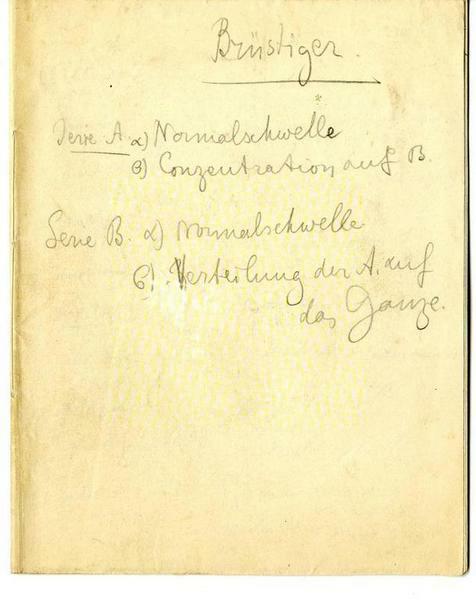 Brüstiger.
Serie A. α) Normalschwelle
β) Conzentration auf B.
Serie B. α) Normalschwelle
β) Verteilung der A. auf
das Ganze.